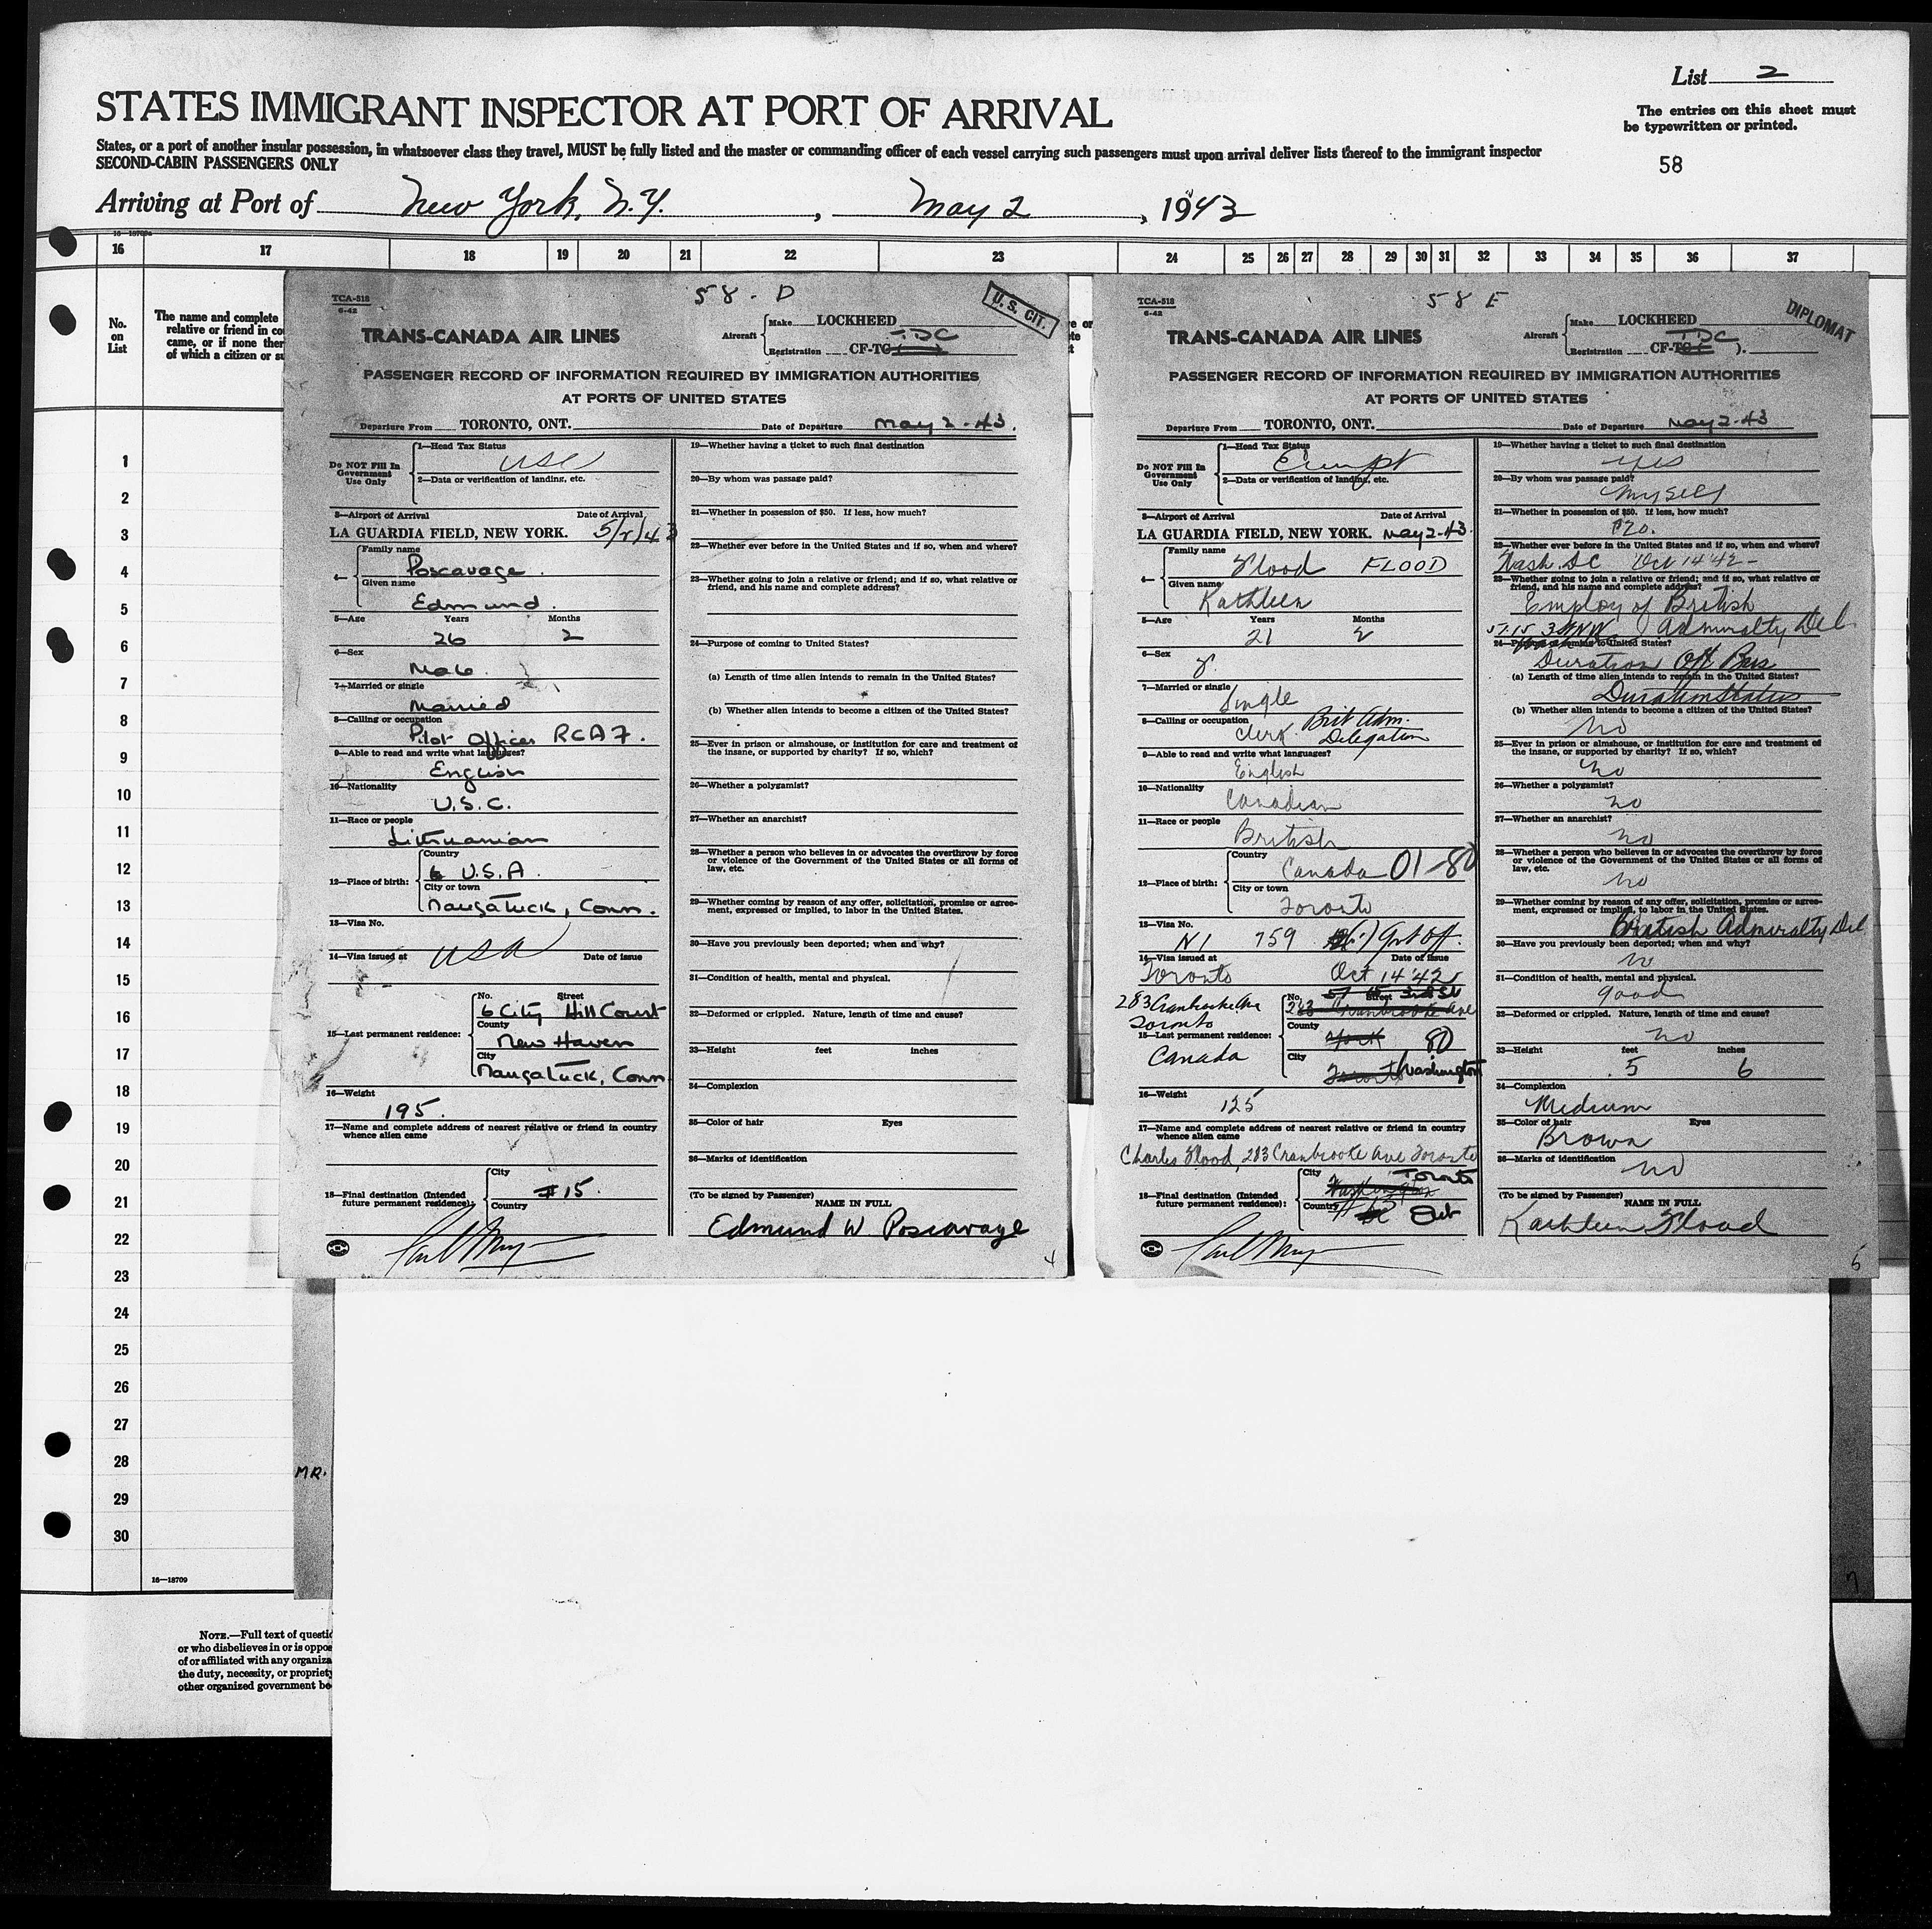 List 2
STATES IMMIGRANT INSPECTOR AT PORT OF ARRIVAL
The entries on this sheet must
be typewritten or printed.
States, or a port of another insular possession, in whatsoever class they travel, MUST be fully listed and the master or commanding officer of each vessel carrying such passengers must upon arrival deliver lists thereof to the immigrant inspector
SECOND-CABIN PASSENGERS ONLY
58
Arriving at Port of New York, N.Y., May 2, 1943
16 17 18 19 20 21 22 23 24 25 26 27 28 29 30 31 32 33 34 35 36 37
No.
on
List
The name and complete
relative or friend in co
came, or if none ther
of which a citizen or su
1
2
3
4
5
6
7
8
9
10
11
12
13
14
15
16
17
18
19
20
21
22
23
24
25
26
27
28
29
30
MR.
16—18709
NOTE.—Full text of questio
or who disbelieves in or is oppos
of or affiliated with any organiza
the duty, necessity, or propriety
other organized government be
58-D
TCA-518
6-42
U. S. CIT.
TRANS-CANADA AIR LINES
Aircraft
Make LOCKHEED
Registration CF-TC
TDC
PASSENGER RECORD OF INFORMATION REQUIRED BY IMMIGRATION AUTHORITIES
AT PORTS OF UNITED STATES
Departure From TORONTO, ONT. Date of Departure May 2-43.
Do NOT Fill In
Government
Use Only
1—Head Tax Status
USC
2—Data or verification of landing, etc.
3—Airport of Arrival Date of Arrival
LA GUARDIA FIELD, NEW YORK. 5/2/43
4—
Family name
Poscavage.
Given name
Edmund.
5—Age Years Months
26 2
6—Sex
Male
7—Married or single
Married
8—Calling or occupation
Pilot Officer RCAF.
9—Able to read and write what languages?
English
10—Nationality
U.S.C.
11—Race or people
Lithuanian
12—Place of birth:
Country
U.S.A.
City or town
Naugatuck, Conn.
13—Visa No.
USA
14—Visa issued at Date of issue
15—Last permanent residence:
No. Street
6 City Hill Court
County
New Haven
City
Naugatuck, Conn
16—Weight
195.
17—Name and complete address of nearest relative or friend in country
whence alien came
18—Final destination (Intended
future permanent residence):
City
#15.
Country
19—Whether having a ticket to such final destination
20—By whom was passage paid?
21—Whether in possession of $50. If less, how much?
22—Whether ever before in the United States and if so, when and where?
23—Whether going to join a relative or friend; and if so, what relative or
friend, and his name and complete address?
24—Purpose of coming to United States?
(a) Length of time alien intends to remain in the United States?
(b) Whether alien intends to become a citizen of the United States?
25—Ever in prison or almshouse, or institution for care and treatment of
the insane, or supported by charity? If so, which?
26—Whether a polygamist?
27—Whether an anarchist?
28—Whether a person who believes in or advocates the overthrow by force
or violence of the Government of the United States or all forms of
law, etc.
29—Whether coming by reason of any offer, solicitation, promise or agree-
ment, expressed or implied, to labor in the United States.
30—Have you previously been deported; when and why?
31—Condition of health, mental and physical.
32—Deformed or crippled. Nature, length of time and cause?
33—Height feet inches
34—Complexion
35—Color of hair Eyes
36—Marks of identification
(To be signed by Passenger)
NAME IN FULL
Edmund W Poscavage
4
58 E
TCA-518
6-42
DIPLOMAT
TRANS-CANADA AIR LINES
Aircraft
Make LOCKHEED
Registration CF-TC
TDC
PASSENGER RECORD OF INFORMATION REQUIRED BY IMMIGRATION AUTHORITIES
AT PORTS OF UNITED STATES
Departure From TORONTO, ONT. Date of Departure May 2-43
Do NOT Fill In
Government
Use Only
1—Head Tax Status
Exempt
2—Data or verification of landing, etc.
3—Airport of Arrival Date of Arrival
LA GUARDIA FIELD, NEW YORK. May 2-43
4—
Family name
Flood FLOOD
Given name
Kathleen
5—Age Years Months
21
6—Sex
F.
7—Married or single
Single
8—Calling or occupation
Clerk Brit Adm.
Delegation
9—Able to read and write what languages?
English
10—Nationality
Canadian
11—Race or people
British
12—Place of birth:
Country
Canada 01-80
City or town
Toronto
13—Visa No.
N1 759 Gvt Off.
14—Visa issued at Date of issue
Toronto Oct 14 '42
283 Cranbrooke Ave
Toronto
Canada
15—Last permanent residence:
No. Street
57 15, 3rd St
283 Cranbrooke Ave
County
York 80
City
Toronto Washington
16—Weight
125
17—Name and complete address of nearest relative or friend in country
whence alien came
Charles Flood, 283 Cranbrooke Ave Toronto
18—Final destination (Intended
future permanent residence):
City
Toronto
Washington
Country
Ont
19—Whether having a ticket to such final destination
Yes
20—By whom was passage paid?
Myself
21—Whether in possession of $50. If less, how much?
$20.
22—Whether ever before in the United States and if so, when and where?
Wash. DC Oct 14 '42-
23—Whether going to join a relative or friend; and if so, what relative or
friend, and his name and complete address?
Employ of British
Admiralty Del.
5715 3 NW
24—Purpose of coming to United States?
Duration Off Bus
(a) Length of time alien intends to remain in the United States?
Duration Status
(b) Whether alien intends to become a citizen of the United States?
No
25—Ever in prison or almshouse, or institution for care and treatment of
the insane, or supported by charity? If so, which?
no
26—Whether a polygamist?
no
27—Whether an anarchist?
no
28—Whether a person who believes in or advocates the overthrow by force
or violence of the Government of the United States or all forms of
law, etc.
no
29—Whether coming by reason of any offer, solicitation, promise or agree-
ment, expressed or implied, to labor in the United States.
British Admiralty Del
30—Have you previously been deported; when and why?
no
31—Condition of health, mental and physical.
good
32—Deformed or crippled. Nature, length of time and cause?
no
33—Height feet inches
5 6
34—Complexion
Medium
35—Color of hair Eyes
Brown
36—Marks of identification
no
(To be signed by Passenger)
NAME IN FULL
Kathleen Flood
5
7